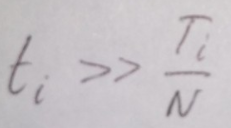 t_i >> \frac{T_i}{N}